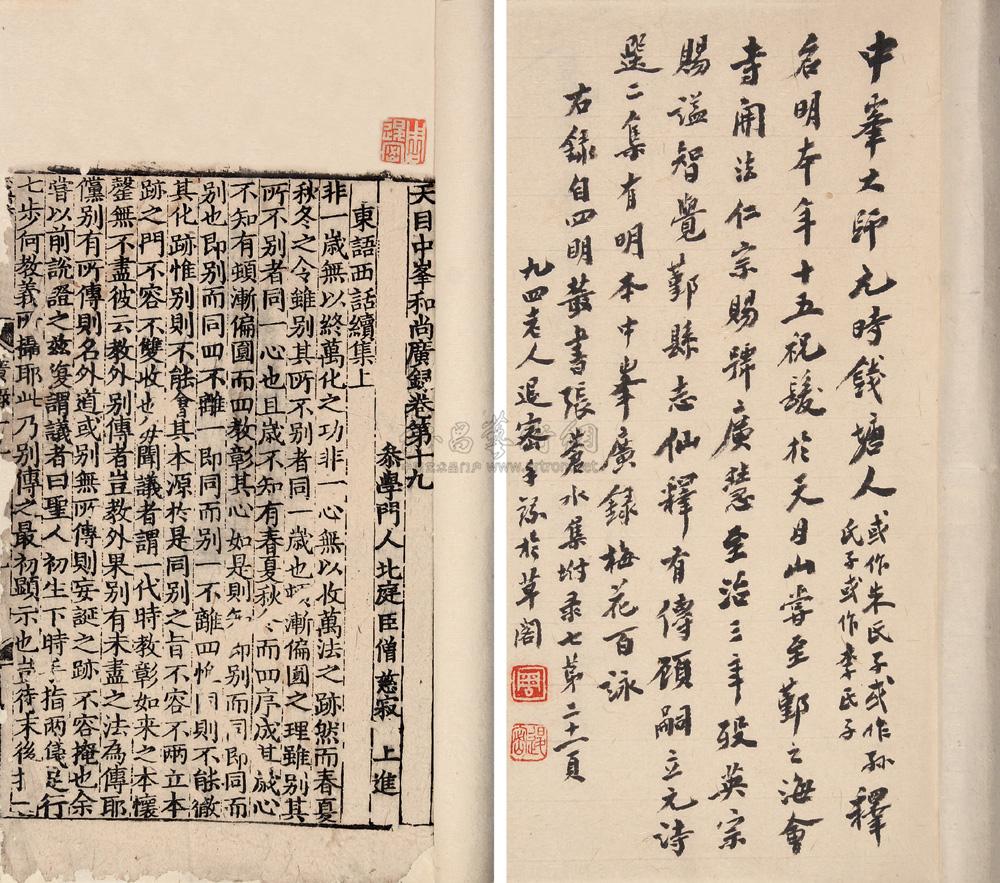 天目中峯和尚廣錄卷第十九
叅學門人北庭臣僧慈寂 上進
東語西話續集上
非一歲無以終萬化之功非一心無以收萬法之跡然而春夏
秋冬之令雖別其所不別者同一歲也頓漸偏圓之理雖別其
所不別者同一心也且歲不知有春夏秋冬而四序成其歲心
不知有頓漸偏圓而四教彰其心如是則
別也即別而同四不離一即同而別一不離四惟同則不能徹
其化跡惟別則不能會其本源於是同別之旨不容不兩立本
跡之門不容不雙收也毋聞議者謂一代時教彰如來之本懷
罄無不盡彼云教外別傳者豈教外果別有未盡之法為傳耶
儻別有所傳則名外道或別無所傳則妄誕之跡不容掩也余
嘗以前說證之茲復謂議者曰聖人初生下時手指兩儀足行
七步何教義所攝耶此乃別傳之最初顯示也豈待末後
中峯大師元時錢塘人或作朱氏子或作孫氏子或作李氏子釋
名明本年十五祝髮於天目山嘗至鄞之海會
寺開法仁宗賜號廣慧至治三年歿英宗
賜謚智覺鄞縣志仙釋有傳顧嗣立元詩
選二集有明本中峯廣錄梅花百詠
右錄自四明叢書張蒼水集坿录七第二十一頁
九四老人退密手錄於草閣
周
退密